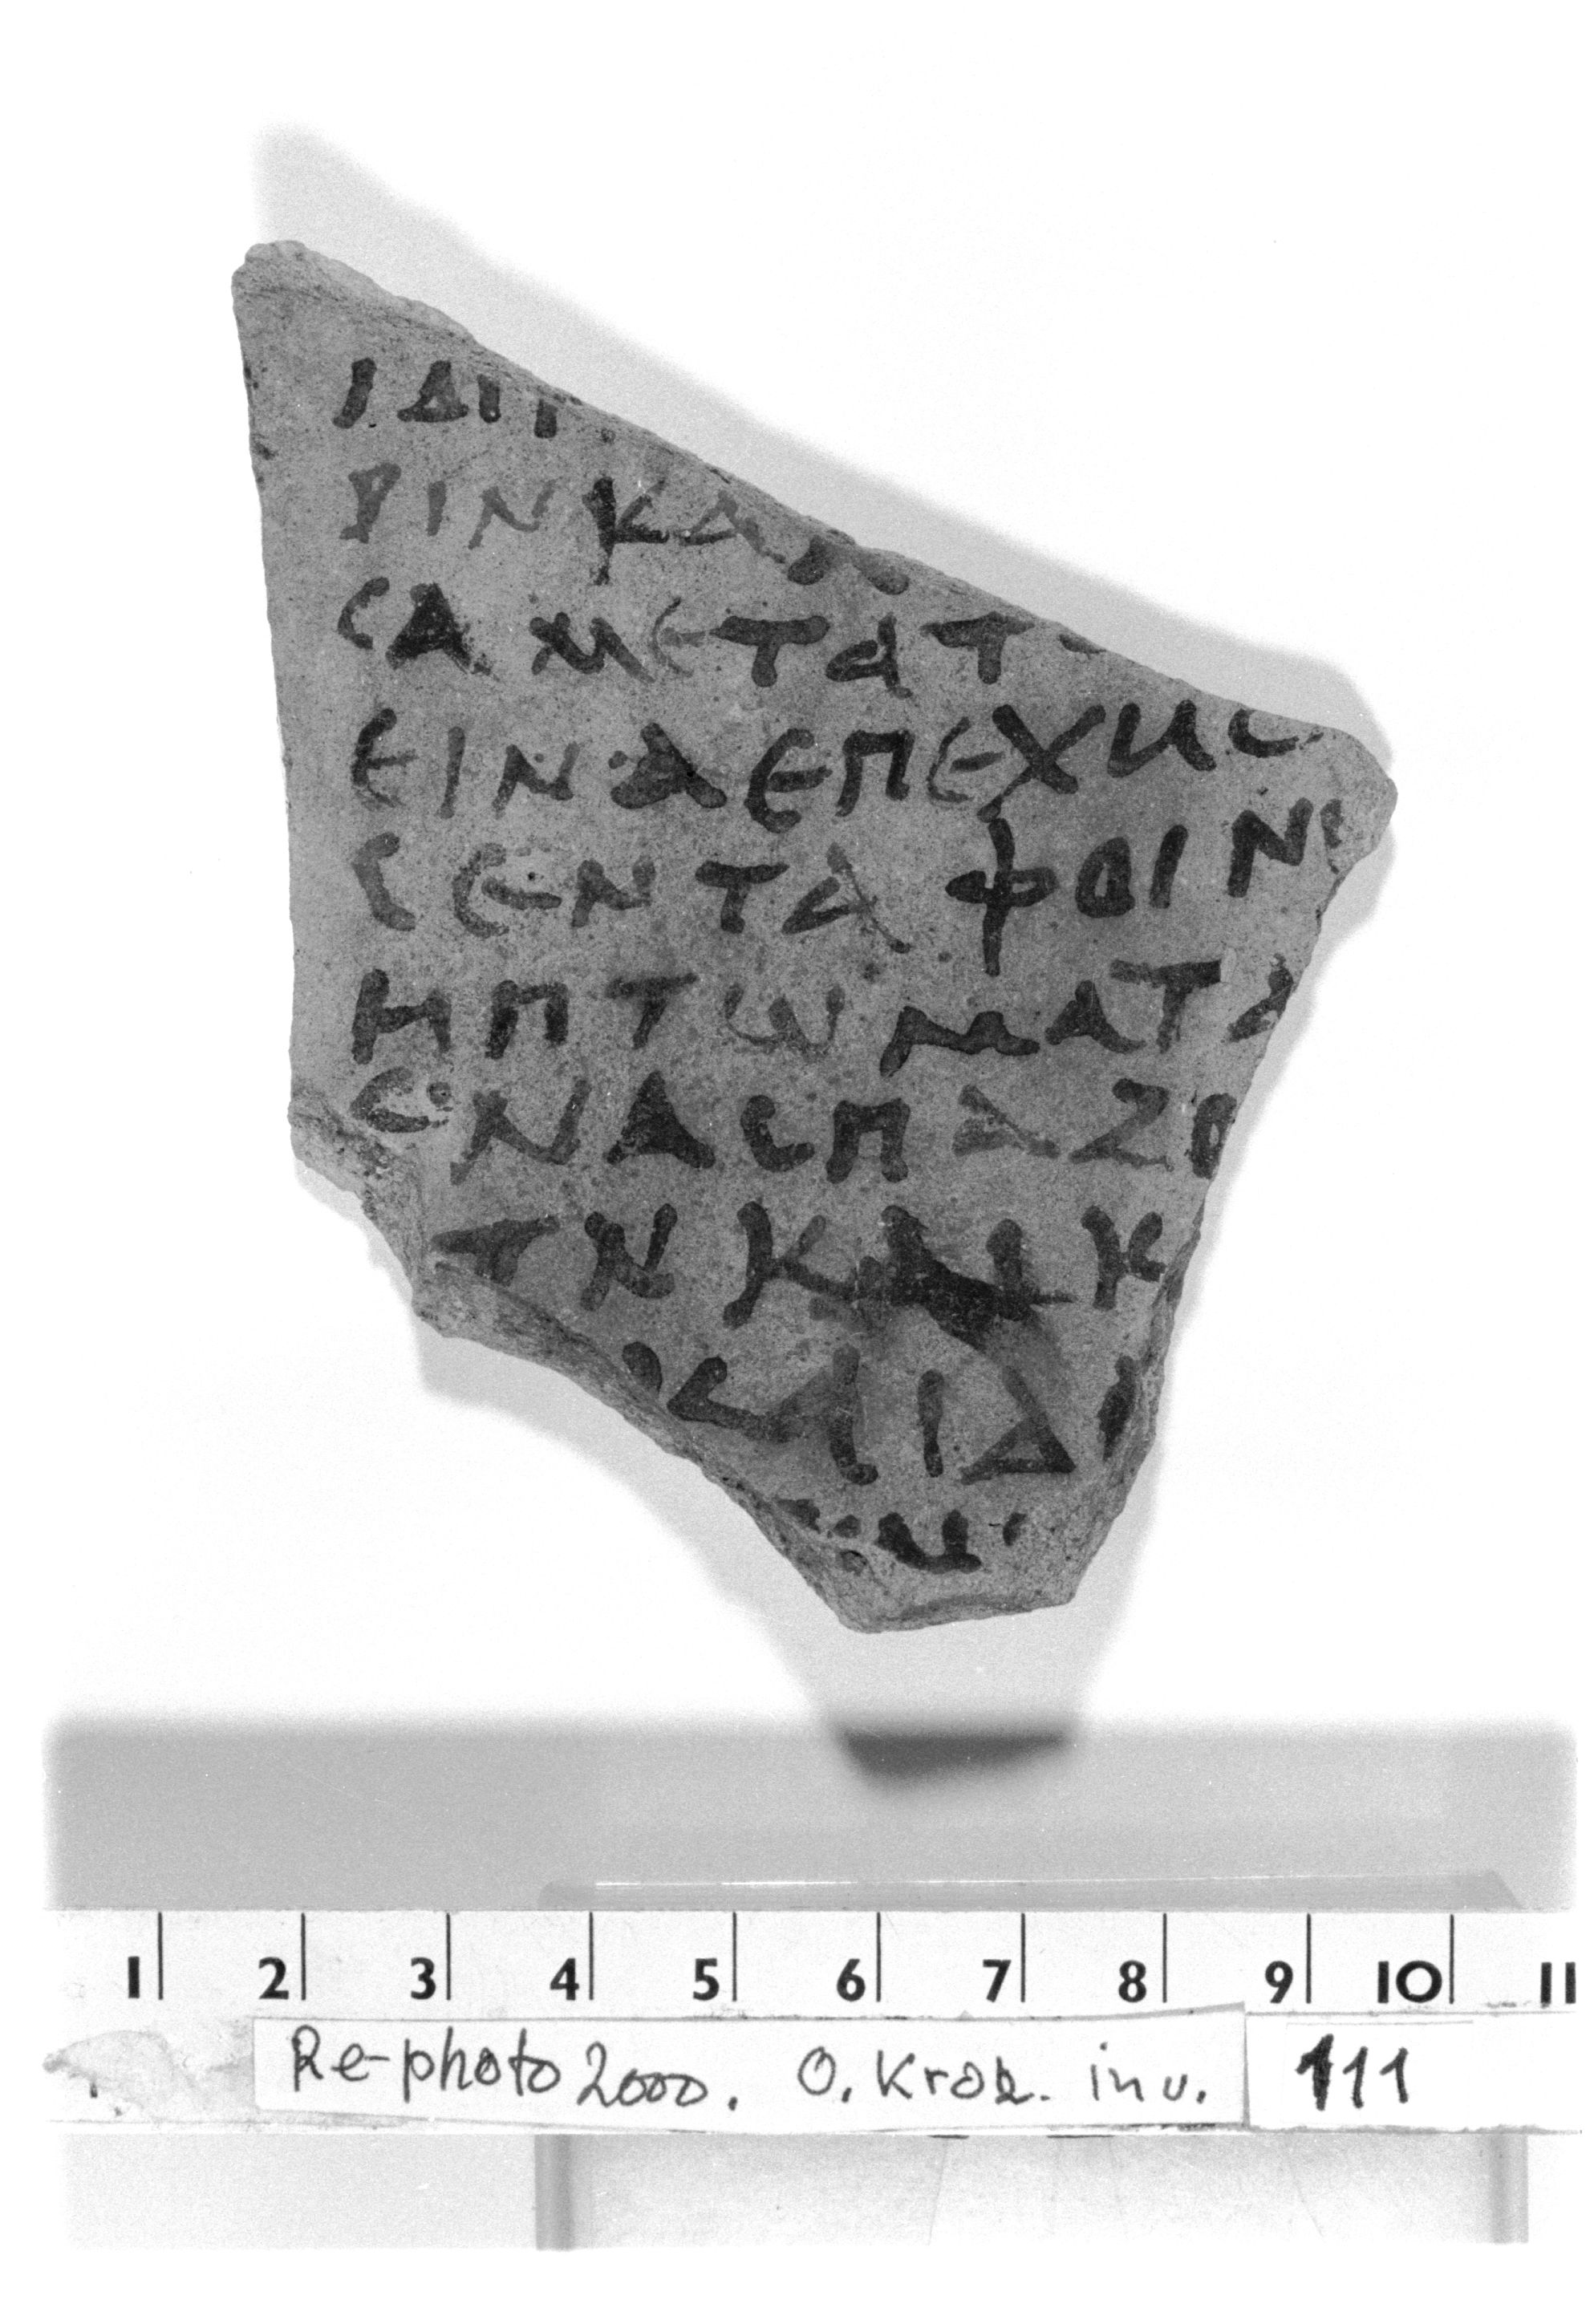 ΙΔΙΠ
ΡΙΝΚΑ
CΑΜΕΤΑΤ
ΕΙΝΑΕΠΕΧΗC
CΕΝΤΑΦΟΙΝΙ
ΗΠΤΩΜΑΤΑ
CΝΑCΠΑΖΟ
ΤΗΚΑΙΚ
ΚΑΙΔΙ
1 2 3 4 5 6 7 8 9 10 11
Re-photo 2000. O. Krok. inv. 111